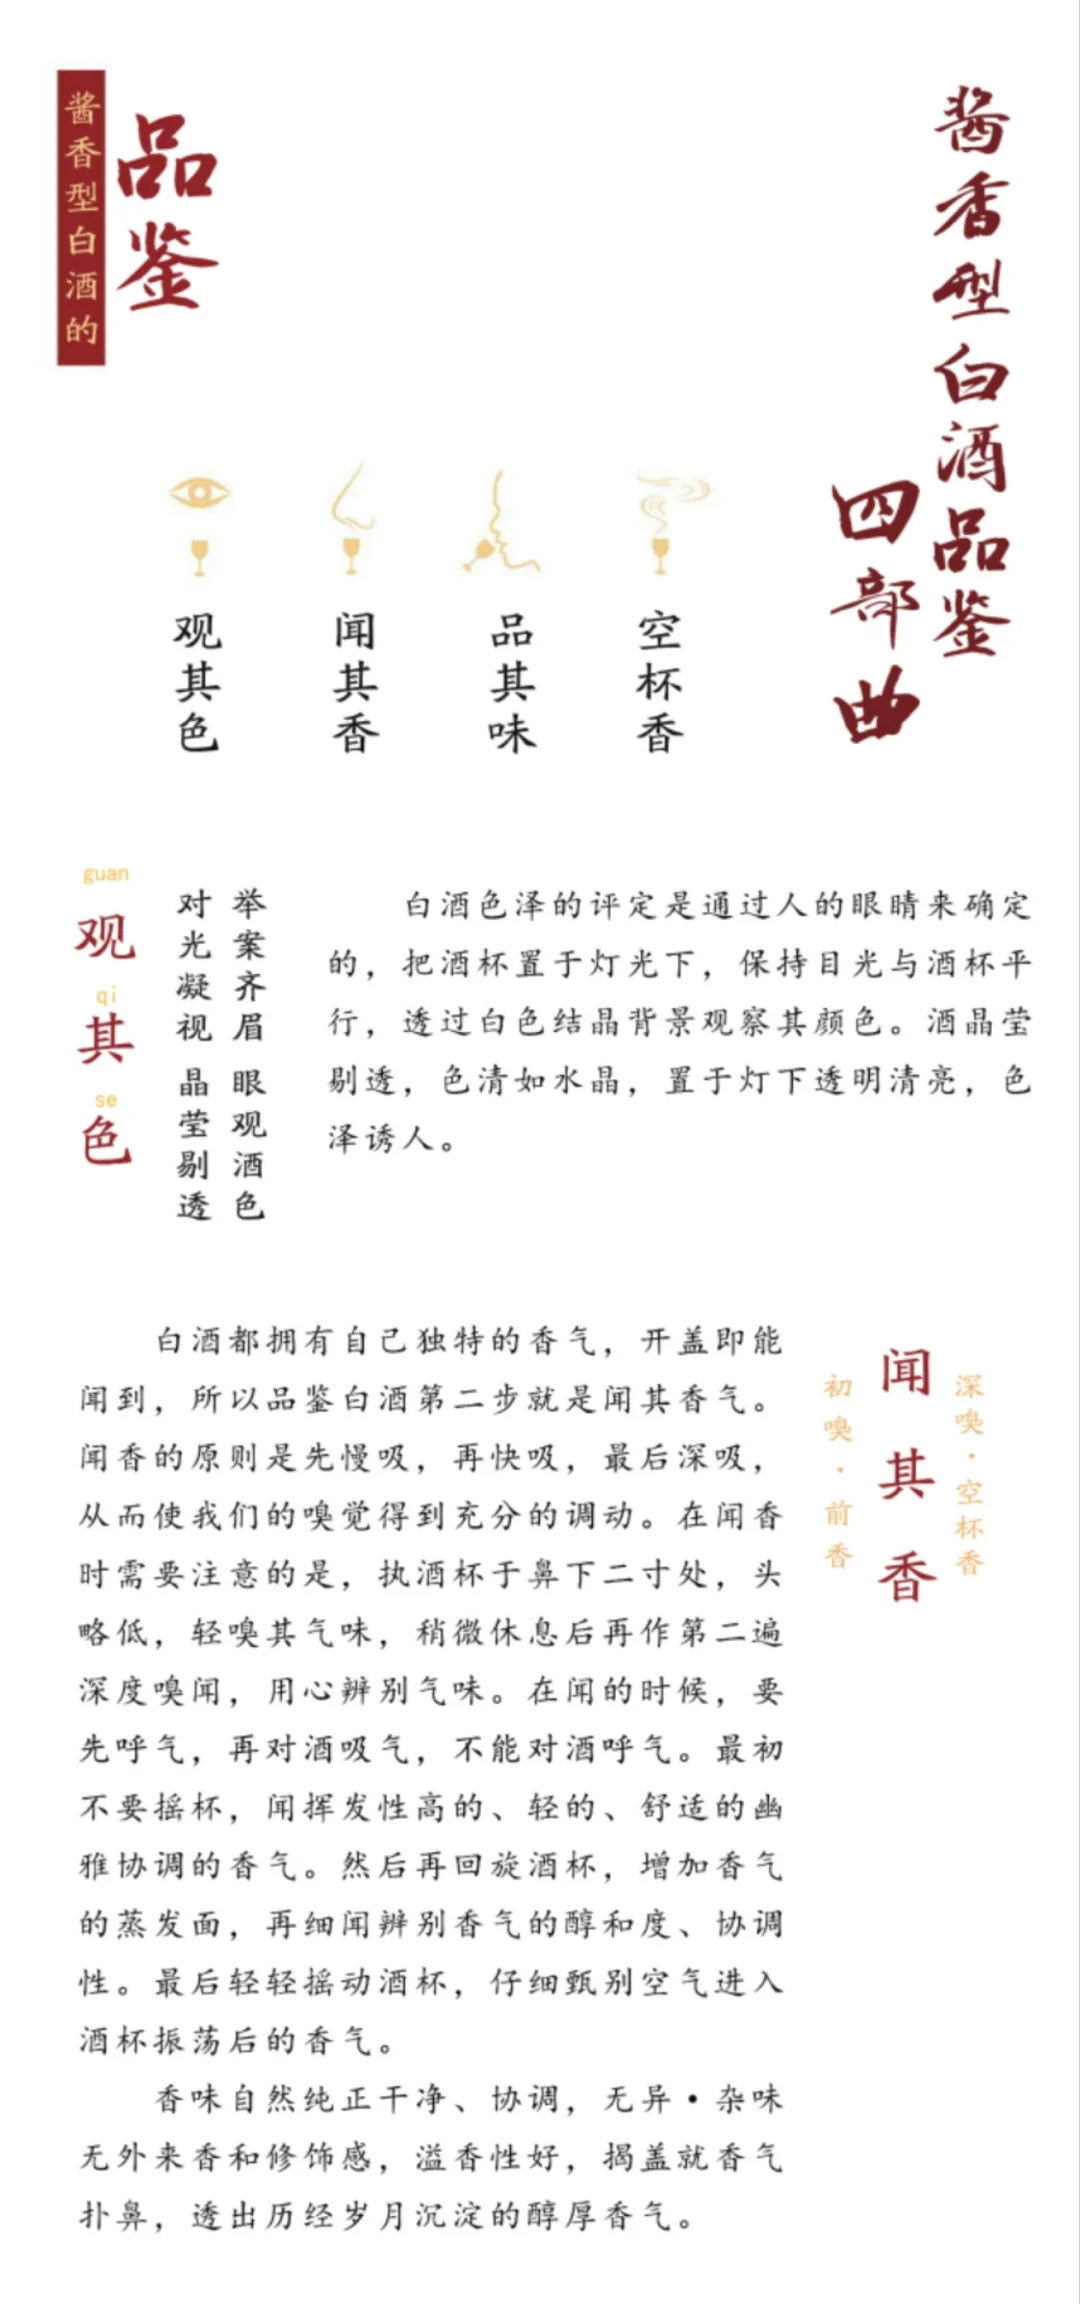 酱香型白酒的
品鉴
酱香型白酒品鉴
四部曲
观其色
闻其香
品其味
空杯香
guan
观
qi
其
se
色
举案齐眉 眼观酒色
对光凝视 晶莹剔透
白酒色泽的评定是通过人的眼睛来确定
的，把酒杯置于灯光下，保持目光与酒杯平
行，透过白色结晶背景观察其颜色。酒晶莹
剔透，色清如水晶，置于灯下透明清亮，色
泽诱人。
闻其香
深嗅·空杯香
初嗅·前香
白酒都拥有自己独特的香气，开盖即能
闻到，所以品鉴白酒第二步就是闻其香气。
闻香的原则是先慢吸，再快吸，最后深吸，
从而使我们的嗅觉得到充分的调动。在闻香
时需要注意的是，执酒杯于鼻下二寸处，头
略低，轻嗅其气味，稍微休息后再作第二遍
深度嗅闻，用心辨别气味。在闻的时候，要
先呼气，再对酒吸气，不能对酒呼气。最初
不要摇杯，闻挥发性高的、轻的、舒适的幽
雅协调的香气。然后再回旋酒杯，增加香气
的蒸发面，再细闻辨别香气的醇和度、协调
性。最后轻轻摇动酒杯，仔细甄别空气进入
酒杯振荡后的香气。
香味自然纯正干净、协调，无异·杂味
无外来香和修饰感，溢香性好，揭盖就香气
扑鼻，透出历经岁月沉淀的醇厚香气。